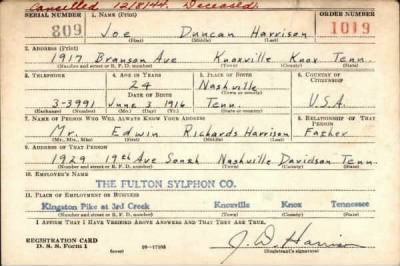 Cancelled 12/8/44. Deceased.
SERIAL NUMBER 1. NAME (Print) ORDER NUMBER
809 Joe Duncan Harrison 1019
(First) (Middle) (Last)
2. ADDRESS (Print)
1917 Branson Ave Knoxville Knox Tenn.
(Number and street or R. F. D. number) (Town) (County) (State)
3. TELEPHONE 4. AGE IN YEARS 5. PLACE OF BIRTH 6. COUNTRY OF CITIZENSHIP
24 Nashville
DATE OF BIRTH (Town or county)
3-3991 June 2 1916 Tenn. U.S.A.
(Exchange) (Number) (Mo.) (Day) (Yr.) (State or country)
7. NAME OF PERSON WHO WILL ALWAYS KNOW YOUR ADDRESS 8. RELATIONSHIP OF THAT PERSON
Mr. Edwin Richards Harrison Father
(Mr., Mrs., Miss) (First) (Middle) (Last)
9. ADDRESS OF THAT PERSON
1929 19th Ave South Nashville Davidson Tenn.
(Number and street or R. F. D. number) (Town) (County) (State)
10. EMPLOYER'S NAME
THE FULTON SYLPHON CO.
11. PLACE OF EMPLOYMENT OR BUSINESS
Kingston Pike at 3rd Creek Knoxville Knox Tennessee
(Number and street or R. F. D. number) (Town) (County) (State)
I AFFIRM THAT I HAVE VERIFIED ABOVE ANSWERS AND THAT THEY ARE TRUE.
REGISTRATION CARD
D. S. S. Form 1 (over) 16-17105 J. D. Harrison
(Registrant's signature)